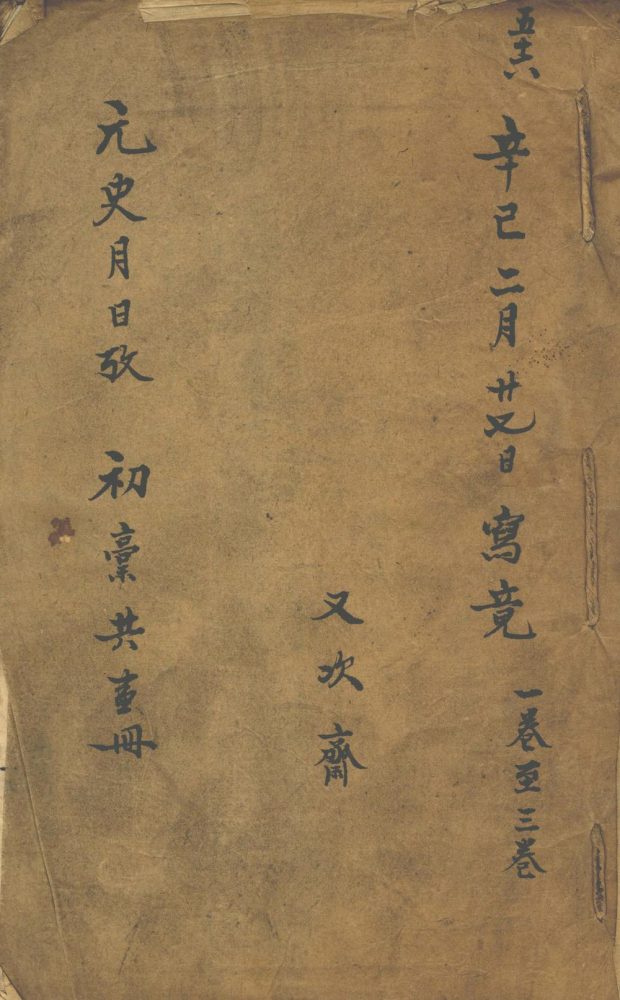 五十六
辛巳二月廿日寫竟 一卷至三卷
又次齋
元史月日攷 初稾共壹冊